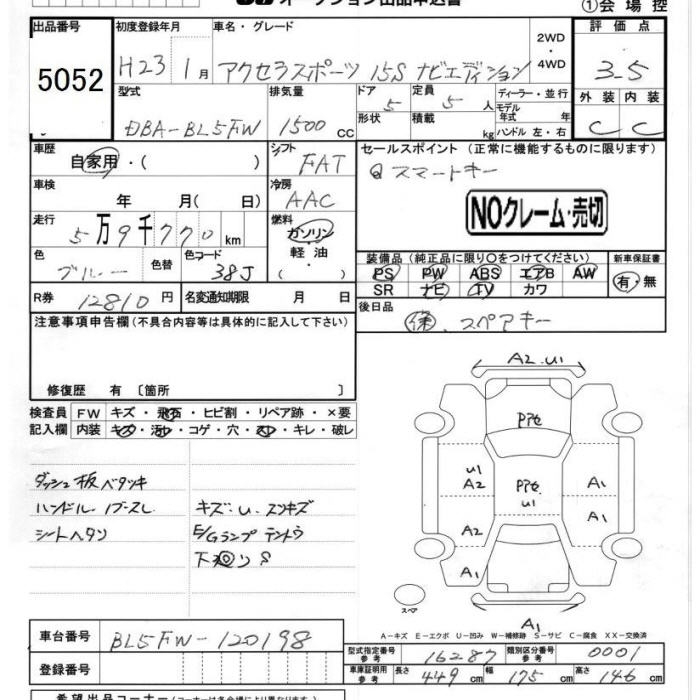 オークション出品申込書 ①会場控
出品番号 初度登録年月 車名・グレード 2WD・4WD 評価点
5052 H23 1月 アクセラスポーツ 15S ナビエディション 3.5
型式 排気量 ドア 5 定員 5人 ディーラー・並行 外装 内装
DBA-BL5FW 1500 cc 形状 積載 kg モデル年式 年 ハンドル 左・右 C C
車歴 自家用・( ) シフト FAT セールスポイント (正常に機能するものに限ります)
車検 年 月( 日) 冷房 AAC スマートキー
NOクレーム・売切
走行 5万9千770km 燃料 ガソリン 軽油・( )
色 ブルー 色替 色コード 38J 装備品 (純正品に限り○をつけてください) 新車保証書
PS PW ABS エアB AW 有・無
SR ナビ TV カワ
R券 12810円 名変通知期限 月 日 後日品
注意事項申告欄 (不具合内容等は具体的に記入して下さい) スペアキー
修復歴 有 〔箇所 〕
検査員 FW キズ・飛石・ヒビ割・リペア跡・×要
記入欄 内装 キズ・コゲ・穴・キレ・破レ
A2.U1
Pアセ
ダッシュ板ベタツキ U1 A2 Pアセ U1 A1
ハンドル キズ・U.スンキズ A1
シートヘタン E/Gランプテントウ A2
下廻りS A1
スペア
A1
A-キズ E-エクボ U-凹み W-補修跡 S-サビ C-腐食 XX-交換済
車台番号 BL5FW-120198
型式指定番号 参考 16287 類別区分番号 参考 0001
登録番号 車庫証明用 参考 長さ 449cm 幅 175cm 高さ 146cm
希望出品コーナー